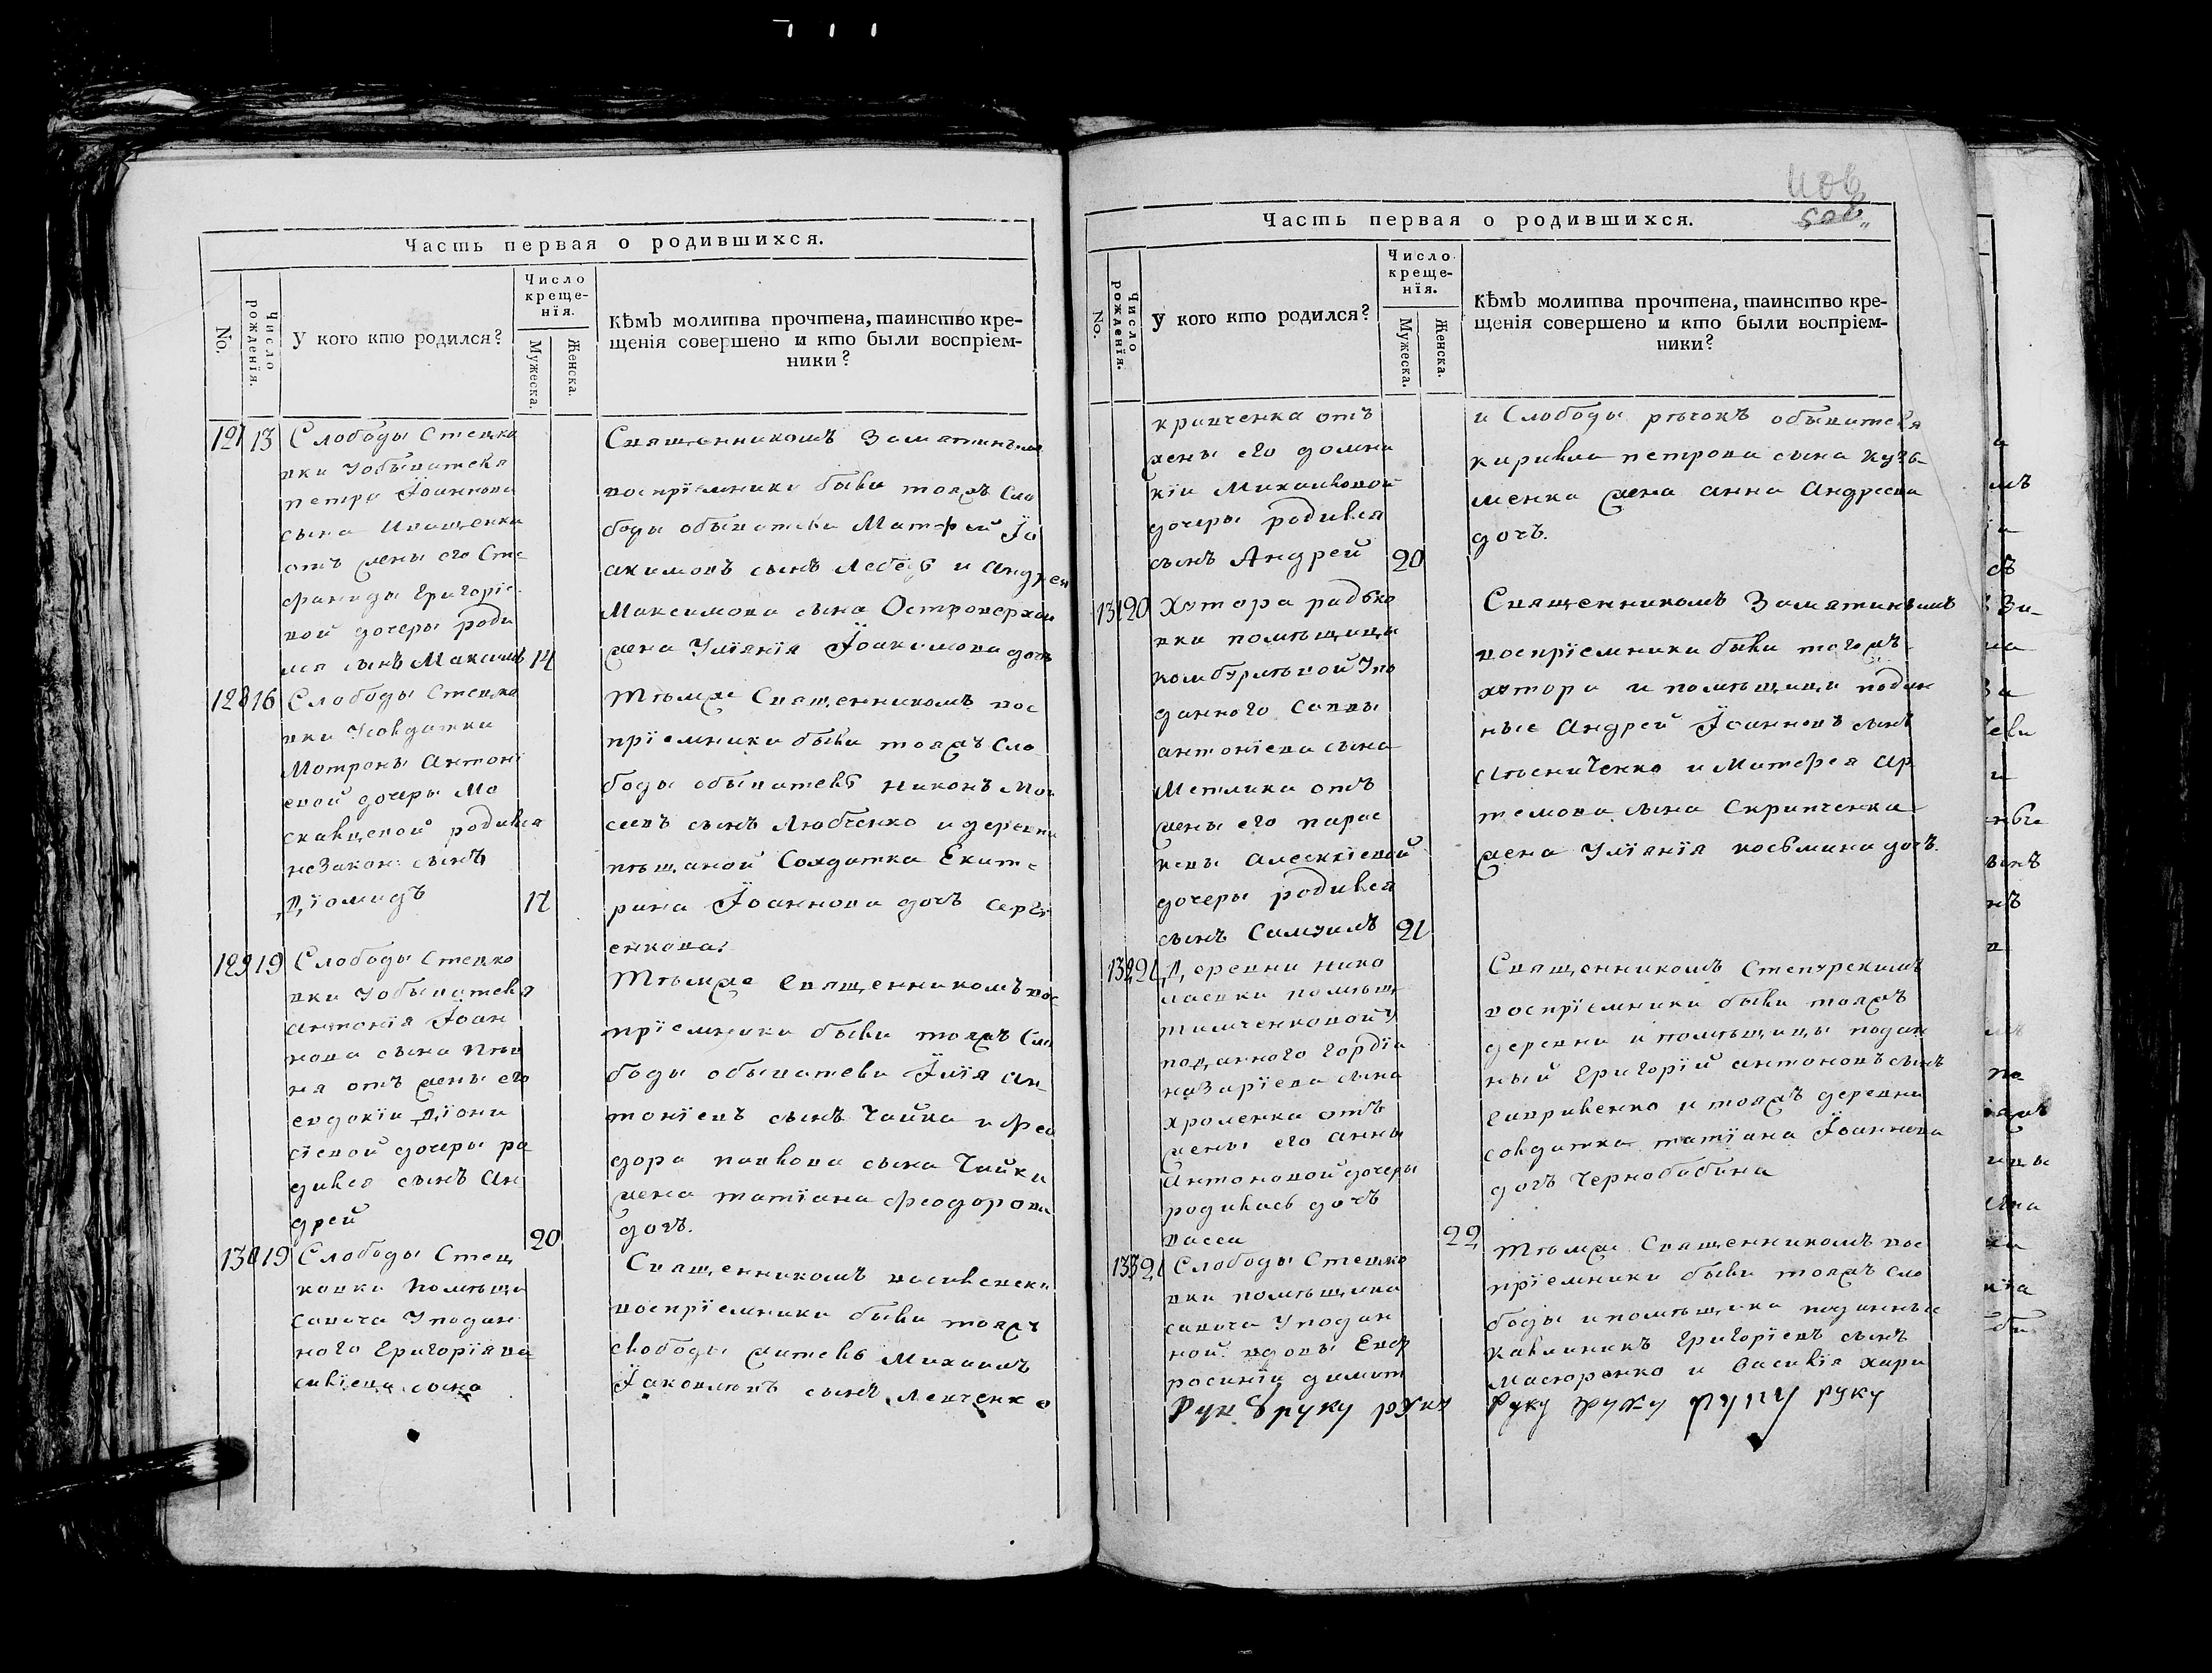 Часть первая о родившихся.
No.
Число рожденїя.
У кого кто родился?
Число
креще-
нїя.
Мужеска.
Женска.
Кѣмъ молитва прочтена, таинство кре-
щенія совершено и кто были воспріем-
ники?
13 Слободы Степко
вки Уобывателя
петра Їоаннова
сына Иващенка
отъ жены его Сте
фаниды Григорїе
вой дочеры роди
лся сынъ Максимъ 14
Священникомъ Замятинымъ
воспрїемники были тояжъ Сло
боды обыватели Матфей Їо
акимовъ сынъ Лебедь и Андрея
Максимова сына Островерхаи
жена Улїянїя Їоакимова дочь
128 16 Слободы Степко
вки Усолдатки
Мотроны Антонї
евой дочеры Мо
скалцевой родился
незакон: сынъ
Дїомидъ 17
Тѣмже Священникомъ вос
прїемники были тояжъ Сло
боды обыватель Никонъ Мои
сеевъ сынъ Любченко и деревни
пѣщаной Солдатка Екате
рина Їоаннова дочь Серге
енкова:
129 19 Слободы Степко
вки Уобывателя
антонїя Їоан
нова сына
ня отъ жены его
евдокїи Дїони
сїевой дочеры ро
дился сынъ Ан
дрей 20
Тѣмже Священникомъ вос
прїемники были тояжъ Сло
боды обыватели Їлїя Ан
тонїевъ сынъ Чайка и Фео
дора павлова сына Чайки
жена татїана феодорова
дочь.
130 19 Слободы Степ
ковки помѣщи
савича Уподан
ного Григорїя ва
силїева сына
Священникомъ
воспрїемники были тояжъ
слободы житель Михаилъ
Їаковлевъ сынъ Левченко
Часть первая о родившихся.
No.
Число рожденїя.
У кого кто родился?
Число
креще-
нїя.
Мужеска.
Женска.
Кѣмъ молитва прочтена, таинство кре-
щенія совершено и кто были воспріем-
ники?
крипченка отъ
жены его домни
кїи Михаиловой
дочеры родился
сынъ Андрей 20
и Слободы рѣчокъ обывателя
кирила петрова сына Кузь
менка жена анна Андреева
дочь.
131 20 Хутора радько
вки помѣщици
комбурлѣвой Упо
данного Саввы
антонїева сына
Метлика отъ
жены его парас
кевы алексїевой
дочеры родился
сынъ Самуилъ 21
Священникомъ Замятинымъ
воспрїемники были тогожъ
хутора и помѣщици подан
ные Андрей Їоанновъ сынъ
и Матфея Ар
темова сына Скрипченка
жена Улїянїя косьмина дочь.
132 21 Деревни нико
лаевки помѣщ:
тимченковой У
поданного Гордїя
назарїева сына
хроленка отъ
жены его анны
Антоновой дочеры
родилась дочь
васса 22
Священникомъ Степурскимъ
воспрїемники были тояжъ
деревни и помѣщицы подан
ный Григорїй антоновъ сынъ
гавриленко и тояжъ деревни
солдатка татїана Їоаннова
дочь Чернобабина
133 21 Слободы Степко
вки помѣщика
савича Уподан
ной вдовы Евф
росинїи димит
Тѣмже Священникомъ вос
прїемники были тояжъ сло
боды и помѣщика поданные
калиникъ Григорїевъ сынъ
Масюренко и Василїя Хари
руку руку
руку руку